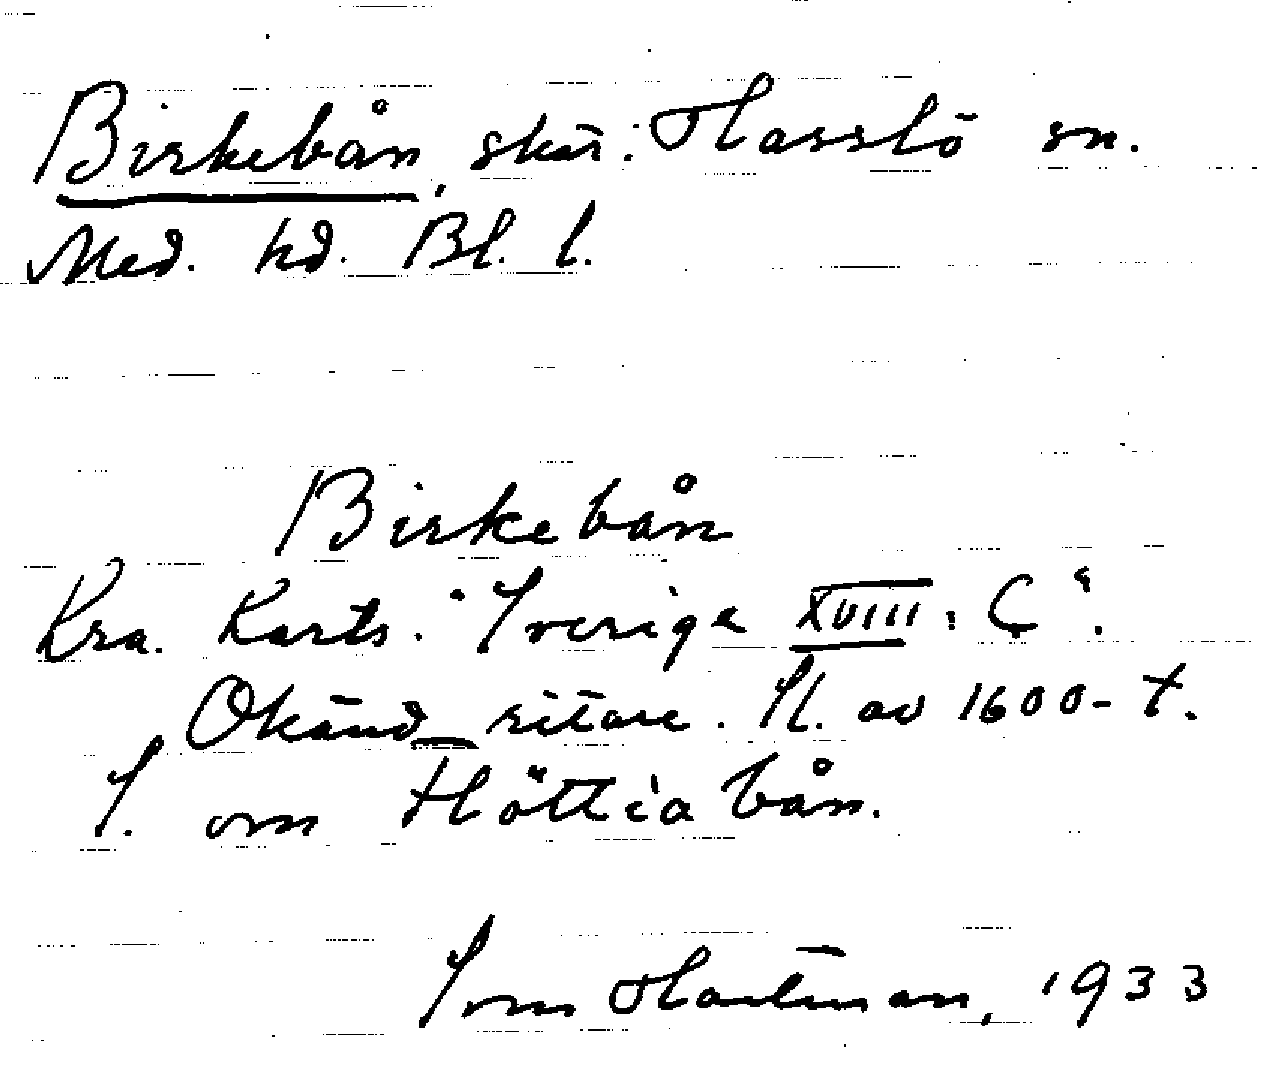 Birkebån, skär. Hasslö sn.
Med. hd. Bl. l.
Birkebån
Kra. Karts. Sverige XVIII: C
Okänd ritare. Sl. av 1600-t.
S. om Höttia bån.
Hartman, 1933